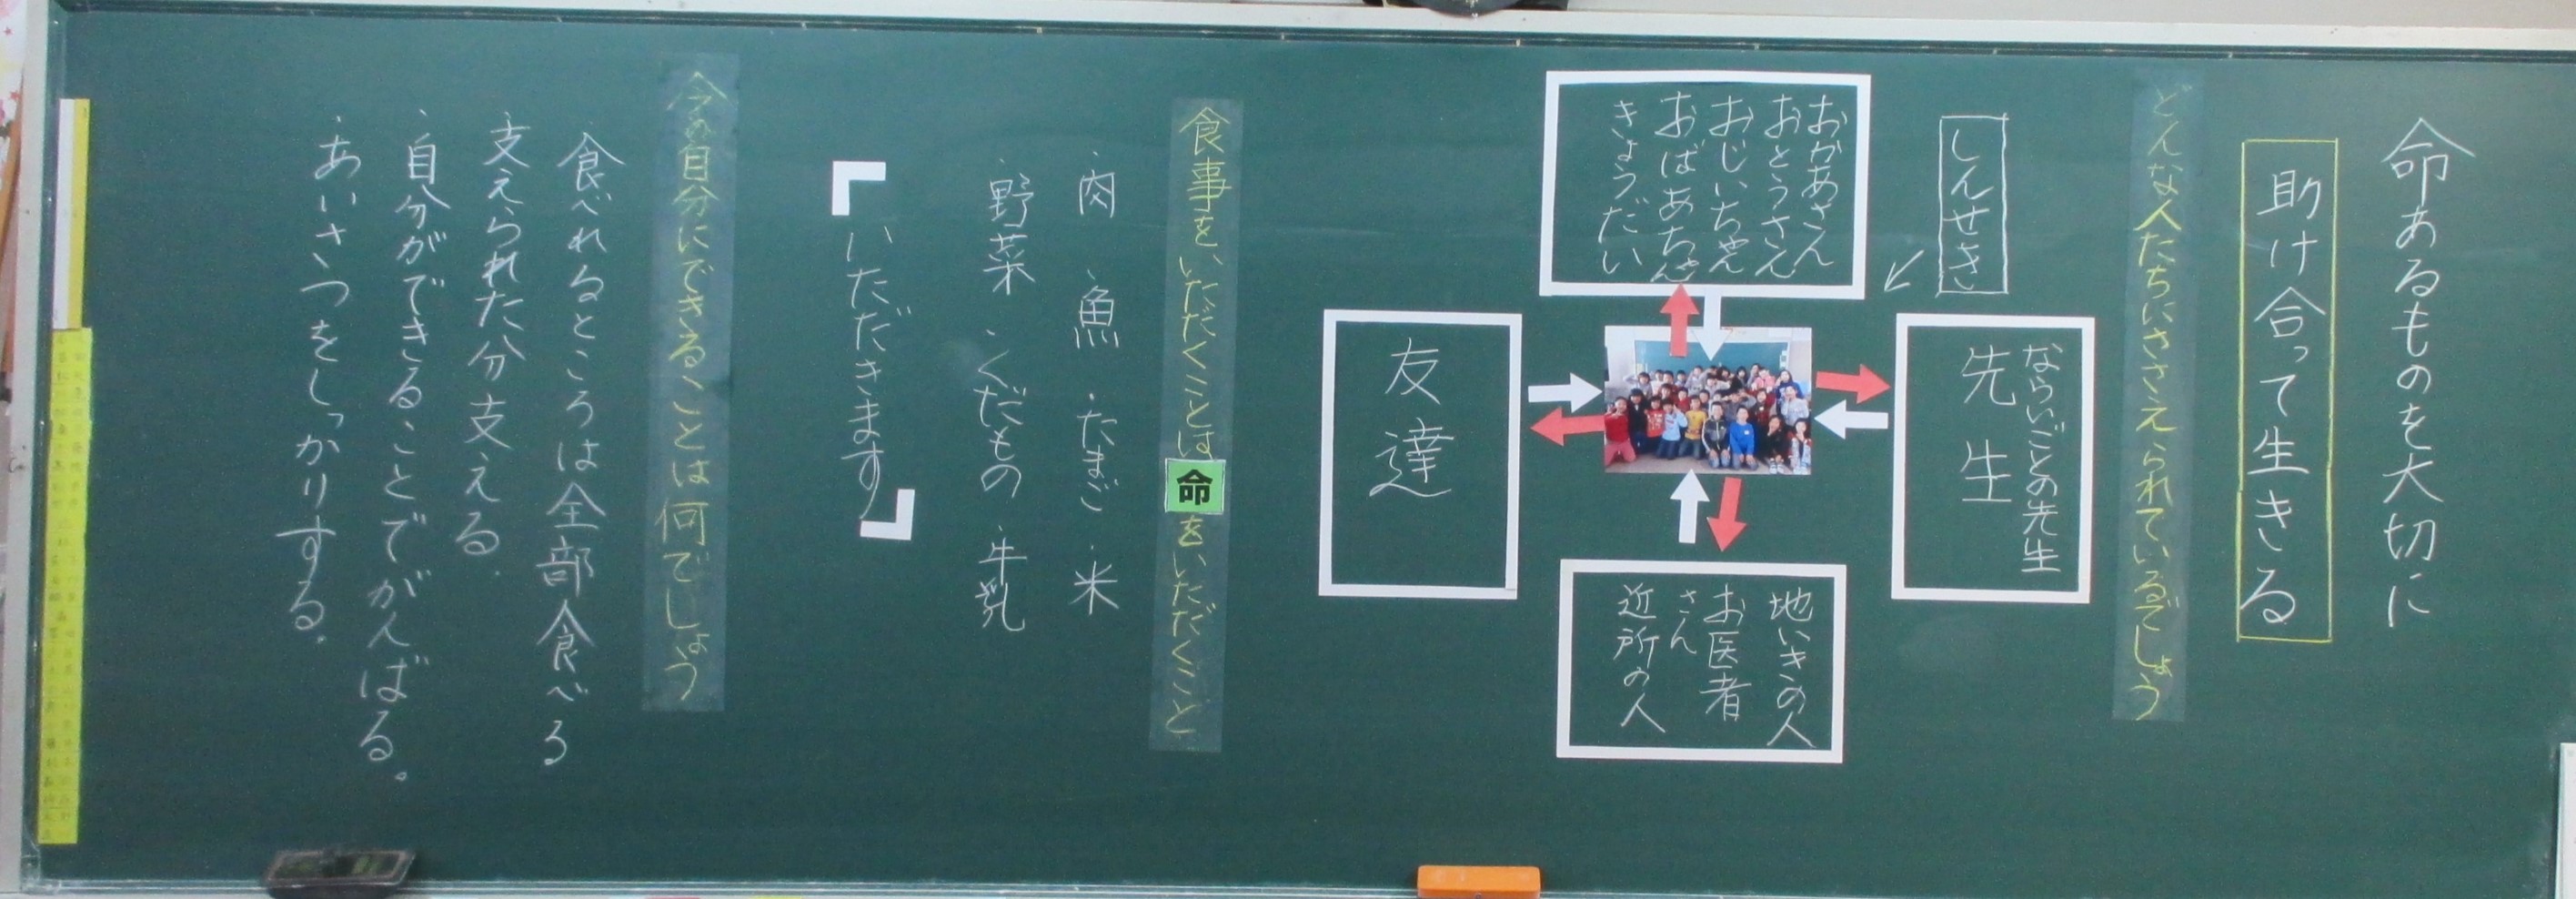 命あるものを大切に
助け合って生きる
どんな人たちにささえられているでしょう
しんせき
ならいごとの先生
先生
おかあさん
おとうさん
おじいちゃん
おばあちゃん
きょうだい
地いきの人
お医者
さん
近所の人
友達
食事をいただくことは命をいただくこと
・肉 ・魚 ・たまご ・米
・野菜 ・くだもの ・牛乳
「いただきます」
今の自分にできることは何でしょう
・食べれるところは全部食べる
・支えられた分支える。
・自分ができることでがんばる。
・あいさつをしっかりする。